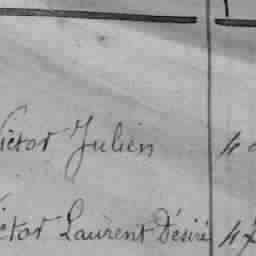 ictor Julien 40
ictor Laurent Désiré 47